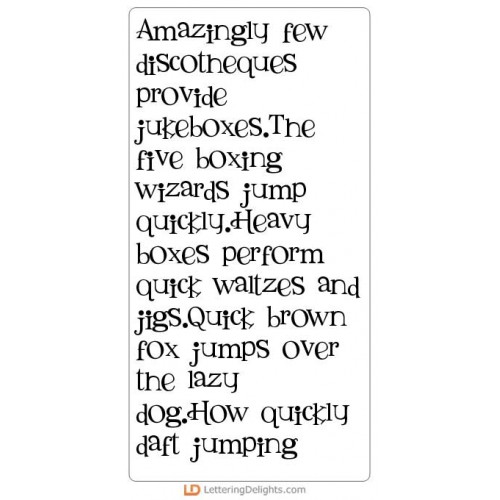 Amazingly few
discotheques
provide
jukeboxes.The
five boxing
wizards jump
quickly.Heavy
boxes perform
quick waltzes and
jigs.Quick brown
fox jumps over
the lazy
dog.How quickly
daft jumping
LD LetteringDelights.com